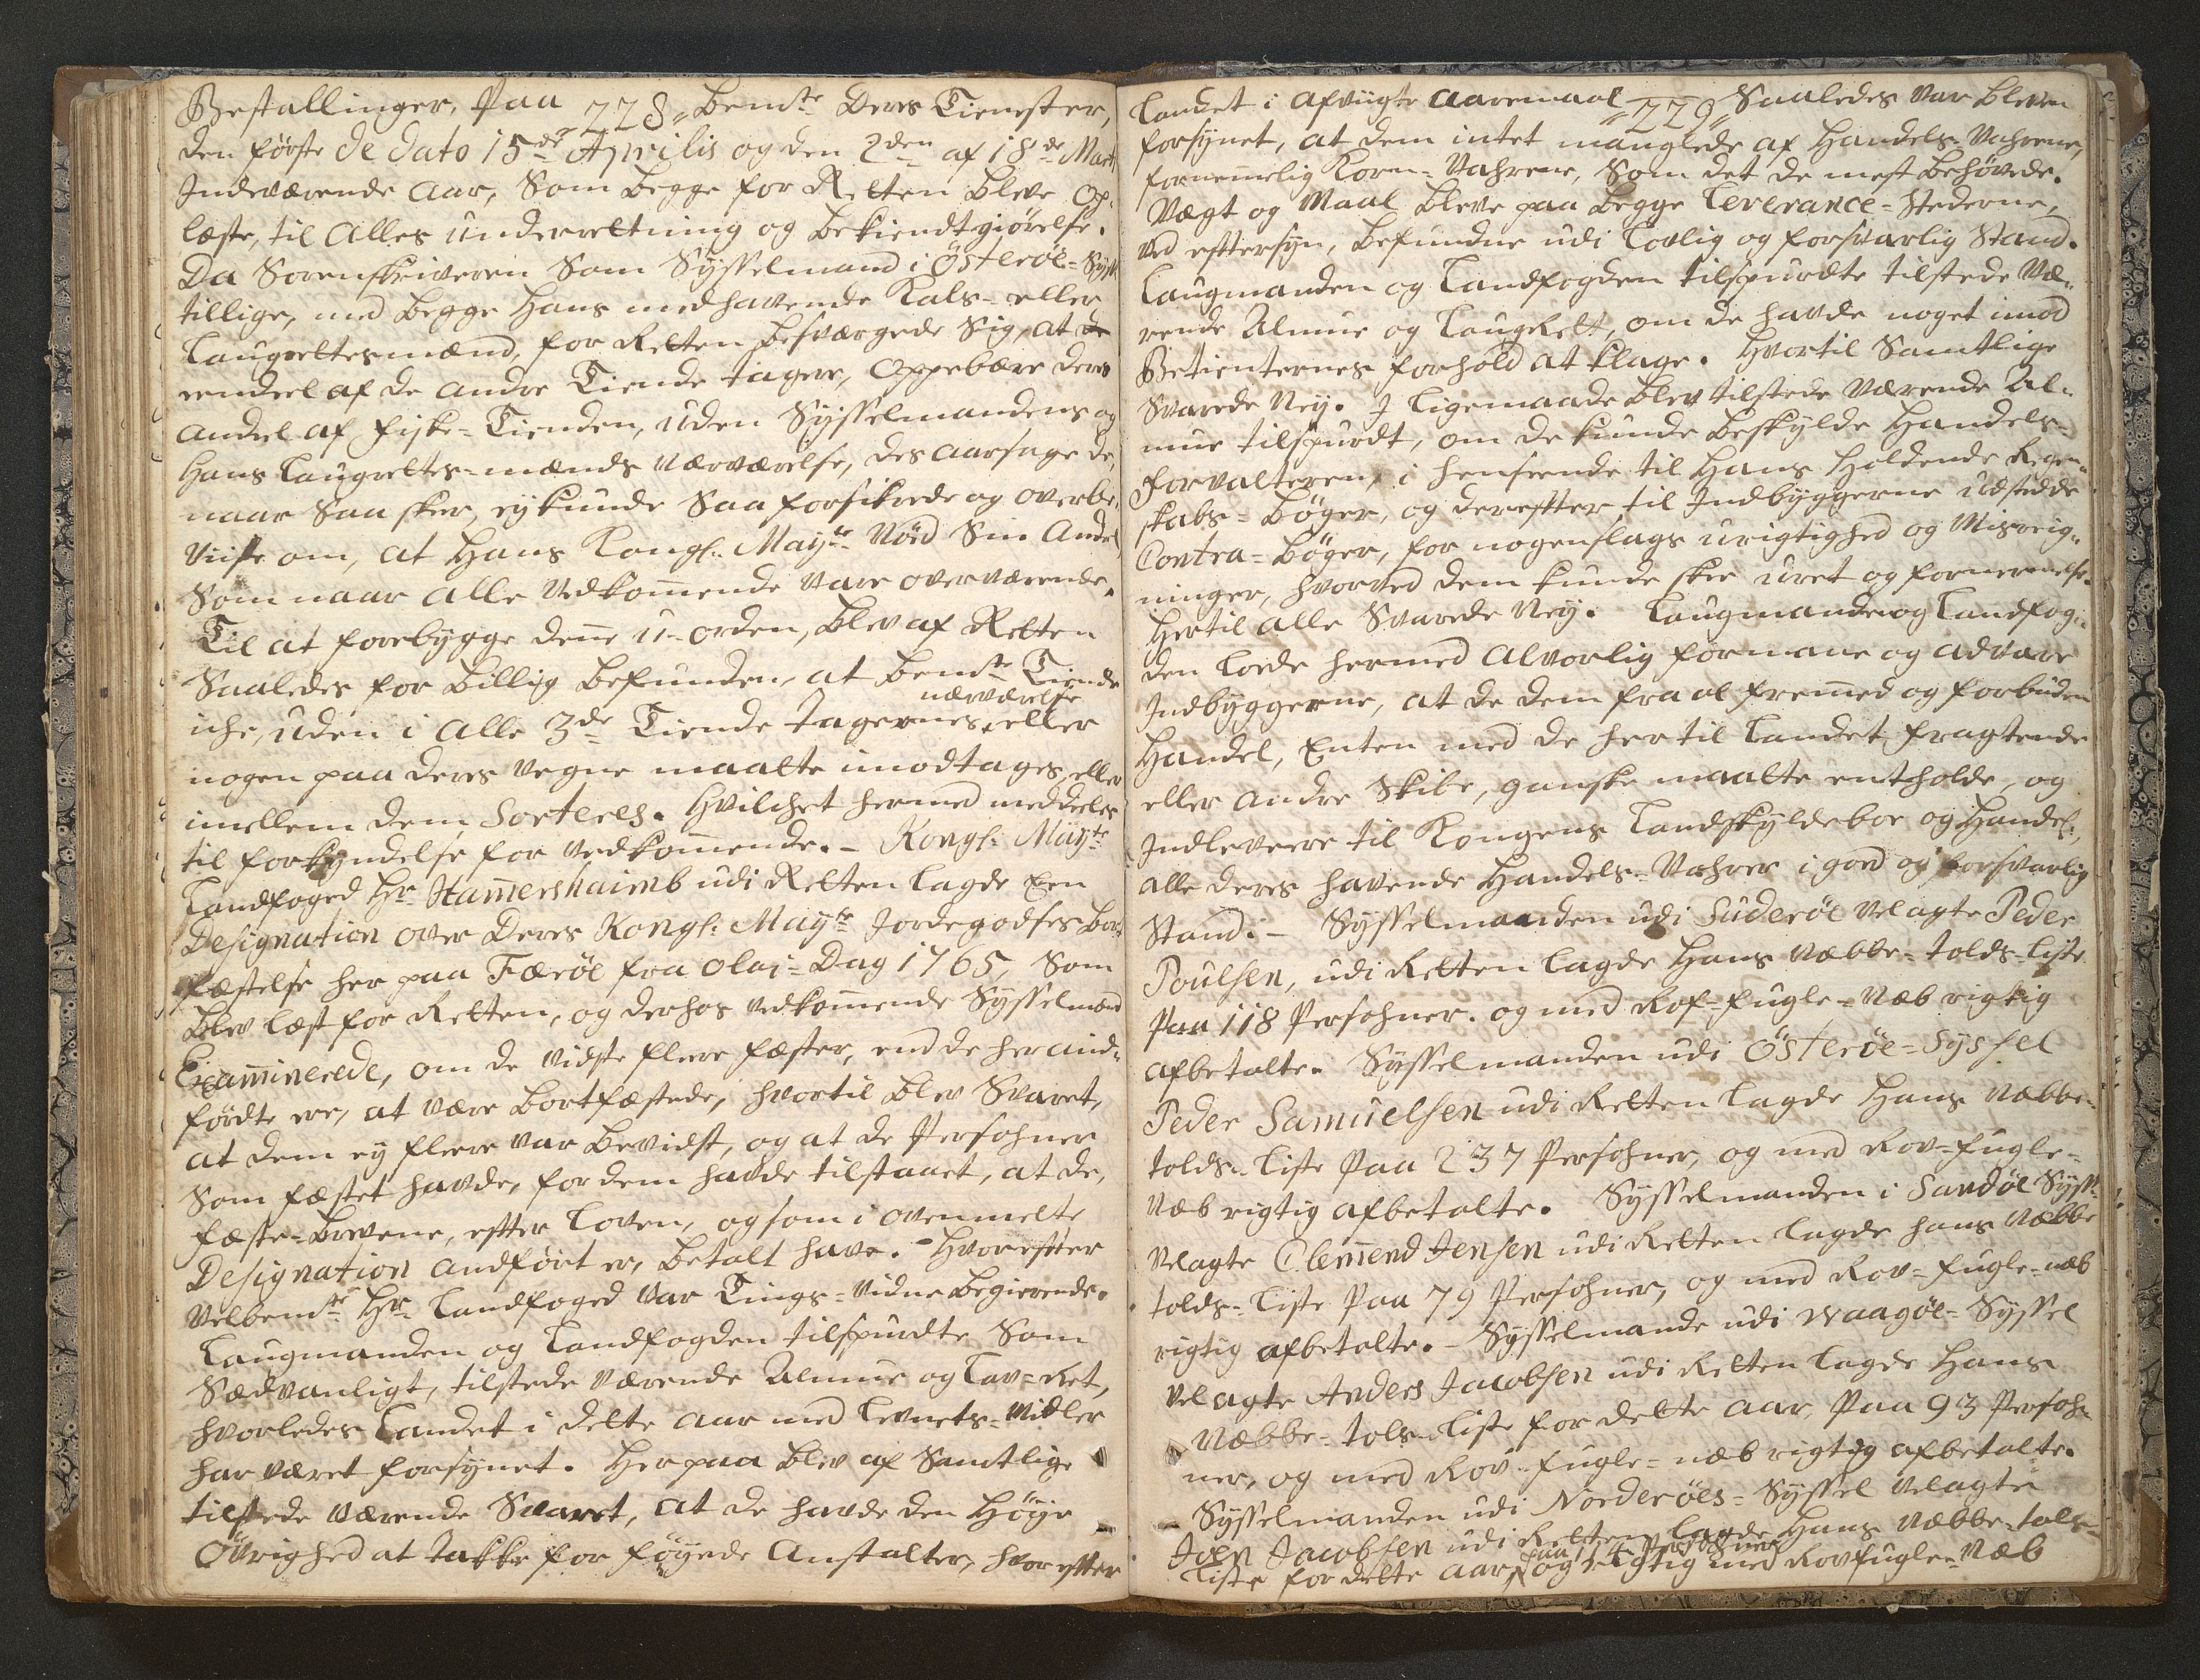 Bestallinger, Paa 228,, bemte Deres Tienester,
den første de dato 15de Aprilis og den 2den af 18de Marti
Indeværende Aar, Som begge for Retten bleve Op-
læste, til Alles Underretning og bekiendtgiørelse.
Da Sorenskriveren Som Sysselmand i Österöe-Syss:
tillige, med begge Hans medhavende Kals- eller
Laugrettesmænd, for Retten besværgede Sig, at de
eendeel af de andre Tiende tagere, Oppebære deres
andeel af Fiske-Tienden, Uden Sysselmandens og
Hans Laugrettes-mænds nærværelse, des aarsage de,
naar Saa skeer, ey kunde Saa forsikrede og overbe-
viiste om, at Hans Kongl. Mayts Nöd Sin Andeel,
Som naar alle Vedkom̄ende vare overværende.
Til at forebygge den̄e U-orden, blev af Retten
Saaledes for billig befunden, at bemte Tiende
nærværelse
iche, uden i alle 3de Tiende Tagernes, eller
nogen paa deres Vegne maatte imodtages, eller
imellem dem Sorteres. Hvilchet hermed meddeeles
til forkyndelse for vedkom̄ende. - Kongl. Mayts
Landfoged Hr. Ham̄ershaimb udi Retten lagde Een
Designation over Deres Kongl. Mayts Jordegodses Bort
fæstelse her paa Færöe fra Olai-Dag 1765, Som
blev læst for Retten, og derhos vedkom̄ende Sysselmænd
Exam̄inerede, om de vidste fleere fæster, end de her and-
førdte ere, at være bortfæstede, hvortil blev Svaret,
at dem ey fleere var bevidst, og at de Persohner
Som fæstet havde, for dem havde tilstaaet, at de,
fæste-brevene, efter Loven, og som i ovenmelte
Designation andført er, betalt have. - Hvorefter
Velbemte Hr. Landfoged var Tings-vidne begierende.
Laugmanden og Landfogden tilspurdte Som
Sædvanligt, tilstede værende Almue og Lav-Ret,
hvorledes Landet i dette Aar med Levnets-Midler
har været forsynet. Herpaa blev af Samtlige
tilstede værende Svaret, at de havde den Høye
Övrighed at takke for föyede Anstalter, hvorefter
Landet i afvigte Aaremaal ,,229,, Saaledes var bleven
forsynet, at dem intet manglede af Handels-Vahrene,
fornem̄elig Korn-Vahrene, Som det de mest behøvede.
Vægt og Maal bleve paa begge Leverance-Stederne,
ved eftersyn, befundne udi lovlig og forsvarlig Stand.
Laugmanden og Landfogden tilspurdte tilstede væ-
rende Almue og LaugRett, om de havde noget imod
Betienternes forhold at klage. Hvortil Samtlige
Svarede Ney. I Ligemaade blev tilstede værende Al-
mue tilspurdt, om de kunde beskylde Handels-
forvalteren, i henseende til Hans Holdende Regen-
skabs-bøger, og derefter til Indbyggerne udstedde
Contra-bøger, for nogenslags urigtighed og Misreig-
ninger, hvorved dem kunde skee uret og fornærmelse.
Hertil alle Svarede Ney. Laugmanden og Landfog-
den lode hermed Alvorlig formane og advare
Indbyggerne, at de dem fra al frem̄ed og forbuden
Handel, Enten med de her til Landet, fragtende
eller andre Skibe, ganske maatte entholde, og
Indlevere til Kongens Landskyldeboe og Handel,
alle deres havende Handels-Vahrer i goed og forsvarlig
Stand. - Sysselmanden udi Suderöe Velagte Peder
Poulsen, udi Retten lagde Hans Næbbe-tolds-Liste
Paa 118 Persohner. og med Rof-fugle-Næb rigtig
afbetalte. Sysselmanden udi Österöe-Syssel
Peder Samuelsen udi Retten lagde Hans Næbbe-
tolds-Liste Paa 237 Persohner, og med Rov-fugle-
Næb rigtig afbetalte. Sysselmanden i Sandöe Syss:
Velagte Clem̄end Jensen udi Retten lagde hans Næbbe
tolds-Liste Paa 79 Persohner, og med Rov-fugle-næb
rigtig afbetalte. - Sysselmande udi Waagöe-Syssel
Velagte Anders Jacobsen udi Retten lagde Hans
Næbbe-tols-Liste for dette Aar, Paa 93 Persoh-
ner, og med Rov-fugle-næb rigtig afbetalte.
Sysselmanden udi Norderöes-Syssel Velagte
Joen Jacobsen udi Retten lagde Hans Næbbe-tols-
Persohner
Liste for dette Aar, og rigtig med Rovfugle-Næb